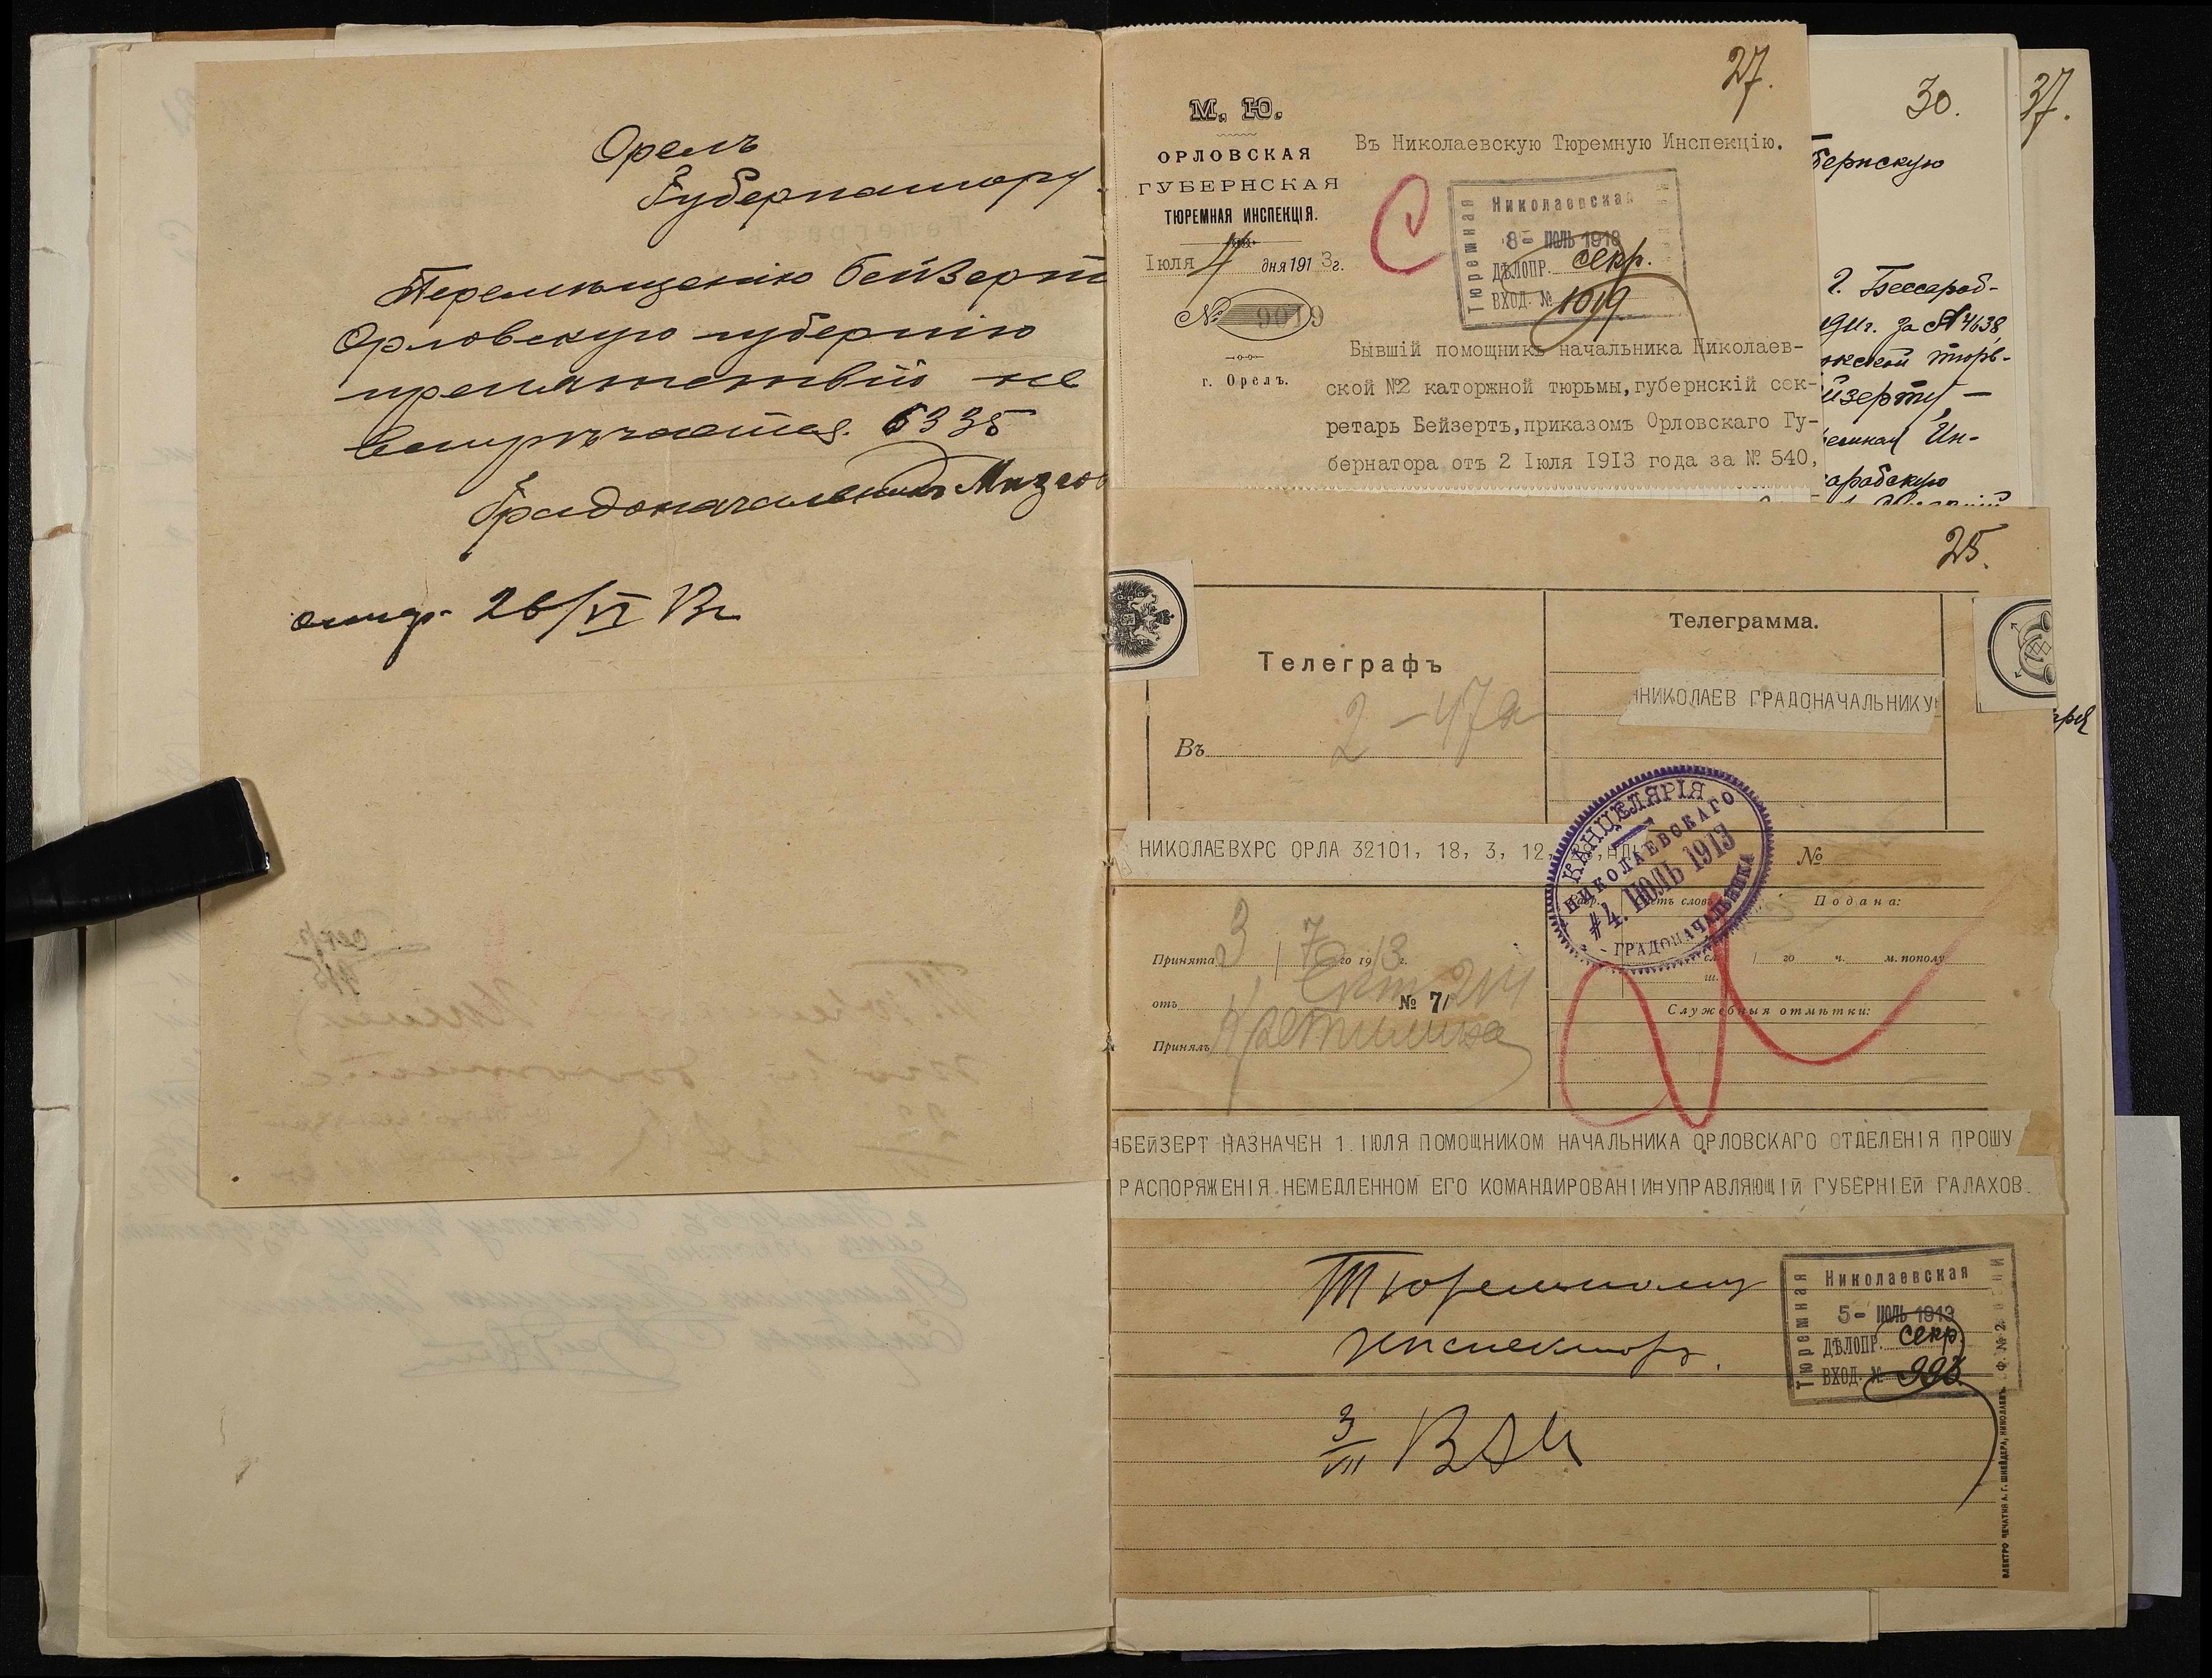 Орелъ
Губернатору
Перемѣщенію Бейзерт
Орловскую губернію
препятствій не
встрѣчается. 6335
Градоначальникъ
отпр. 26/VI 13г
27.
М. Ю.
ОРЛОВСКАЯ
ГУБЕРНСКАЯ
ТЮРЕМНАЯ ИНСПЕКЦІЯ.
Іюля 4 дня 1913г.
№ 9019
г. Орелъ.
Въ Николаевскую Тюремную Инспекцію.
Тюремная
Николаевская
8- ІЮЛЬ 1913
ДѢЛОПР. секр.
ВХОД. № 1019
Бывшій помощникъ начальника Николаев-
ской №2 каторжной тюрьмы, губернскій сек-
ретарь Бейзертъ, приказомъ Орловскаго Гу-
бернатора отъ 2 Іюля 1913 года за № 540,
30.
бернскую
г. Бессараб-
1911г. за № 4638,
йзерту —
Ин-
сарабскую
37.
25.
Телеграфъ
2-47а
Въ
Телеграмма.
НИКОЛАЕВ ГРАДОНАЧАЛЬНИКУ
НИКОЛАЕВХРС ОРЛА 32101, 18, 3, 12,
№
КАНЦЕЛЯРІЯ
НИКОЛАЕВСКАГО
4. ІЮЛЬ 1913
ГРАДОНАЧАЛЬНИКА
Подана:
Принята 3 / 7 го 1913г.
го ч. м. пополу
отъ № 7/
Принялъ
Служебныя отмѣтки:
БЕЙЗЕРТ НАЗНАЧЕН 1 ІЮЛЯ ПОМОЩНИКОМ НАЧАЛЬНИКА ОРЛОВСКАГО ОТДЕЛЕНІЯ ПРОШУ
РАСПОРЯЖЕНІЯ НЕМЕДЛЕННОМ ЕГО КОМАНДИРОВАНІИ=УПРАВЛЯЮЩІЙ ГУБЕРНІЕЙ ГАЛАХОВ.
Тюремному
инспектору.
3/VII
Тюремная
Николаевская
5- ІЮЛЬ 1913
ДѢЛОПР. секр.
ВХОД. № 993
ЭЛЕКТРО ПЕЧАТНЯ А. Г. ШНЕЙДЕРА, НИКОЛАЕВЪ. Ф. № 2.